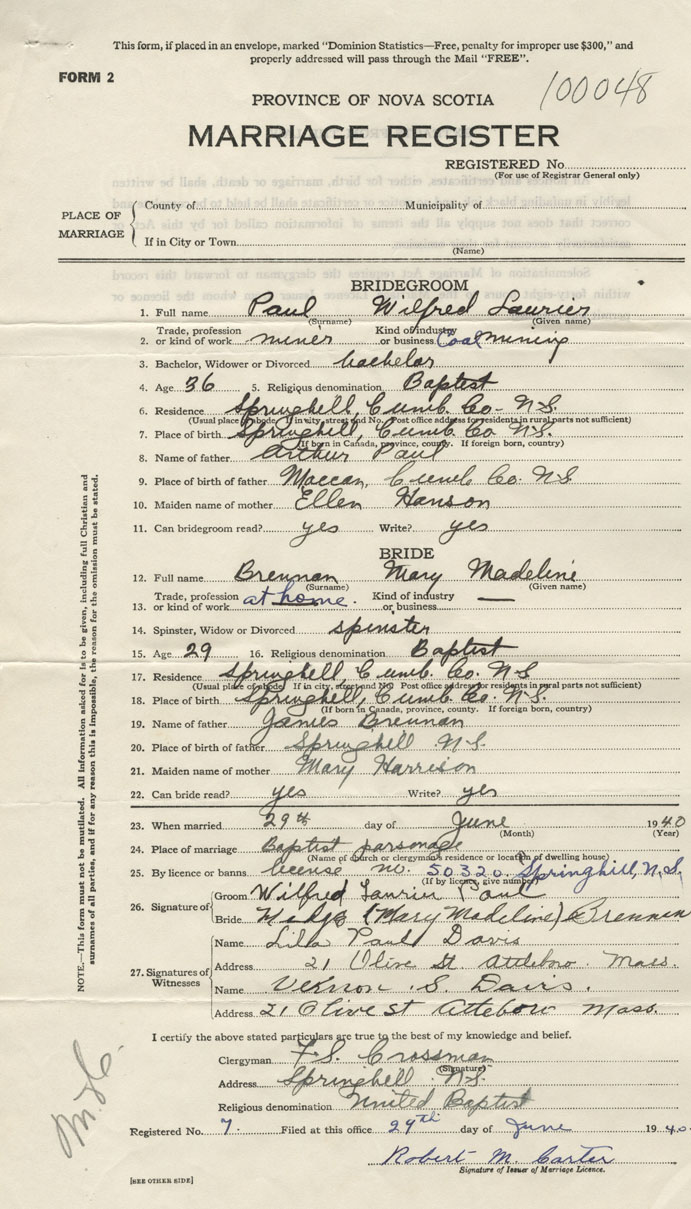 This form, if placed in an envelope, marked "Dominion Statistics—Free, penalty for improper use $300," and
properly addressed will pass through the Mail "FREE".
FORM 2
100048
PROVINCE OF NOVA SCOTIA
MARRIAGE REGISTER
REGISTERED No.
(For use of Registrar General only)
PLACE OF MARRIAGE
County of Municipality of
If in City or Town
(Name)
BRIDEGROOM
1. Full name Paul Wilfred Laurier
(Surname) (Given name)
Trade, profession Kind of industry
2. or kind of work miner or business Coal mining
3. Bachelor, Widower or Divorced bachelor
4. Age 36 5. Religious denomination Baptist
6. Residence Springhill, Cumb. Co. N.S.
(Usual place of abode. If in city, street and No. Post office address for residents in rural parts not sufficient)
7. Place of birth Springhill, Cumb. Co. N.S.
(If born in Canada, province, county. If foreign born, country)
8. Name of father Arthur Paul
9. Place of birth of father Maccan, Cumb. Co. N.S
10. Maiden name of mother Ellen Hanson
11. Can bridegroom read? yes Write? yes
BRIDE
12. Full name Brennan Mary Madeline
(Surname) (Given name)
Trade, profession Kind of industry
13. or kind of work at home. or business —
14. Spinster, Widow or Divorced spinster
15. Age 29 16. Religious denomination Baptist
17. Residence Springhill, Cumb. Co. N.S
(Usual place of abode. If in city, street and No. Post office address for residents in rural parts not sufficient)
18. Place of birth Springhill, Cumb. Co. N.S.
(If born in Canada, province, county. If foreign born, country)
19. Name of father James Brennan
20. Place of birth of father Springhill N.S.
21. Maiden name of mother Mary Harrison
22. Can bride read? yes Write? yes
23. When married 29th day of June 1940
(Month) (Year)
24. Place of marriage Baptist parsonage
(Name of church or clergyman's residence or location of dwelling house)
25. By licence or banns license no. 50320. Springhill, N.S.
(If by licence, give number)
26. Signature of
Groom Wilfred Laurier Paul
Bride (Mary Madeline) Brennan
27. Signatures of Witnesses
Name Lilla Paul Davis
Address 21 Olive St Attleboro. Mass.
Name Vernon S. Davis.
Address 21 Olive St Attleboro Mass.
I certify the above stated particulars are true to the best of my knowledge and belief.
Clergyman F. S. Crossman
(Signature)
Address Springhill N.S.
Religious denomination United Baptist
Registered No. 7. Filed at this office 29th day of June 1940.
Robert M. Carter
Signature of Issuer of Marriage Licence.
[SEE OTHER SIDE]
NOTE.—This form must not be mutilated. All information asked for is to be given, including full Christian and
surnames of all parties, and if for any reason this is impossible, the reason for the omission must be stated.